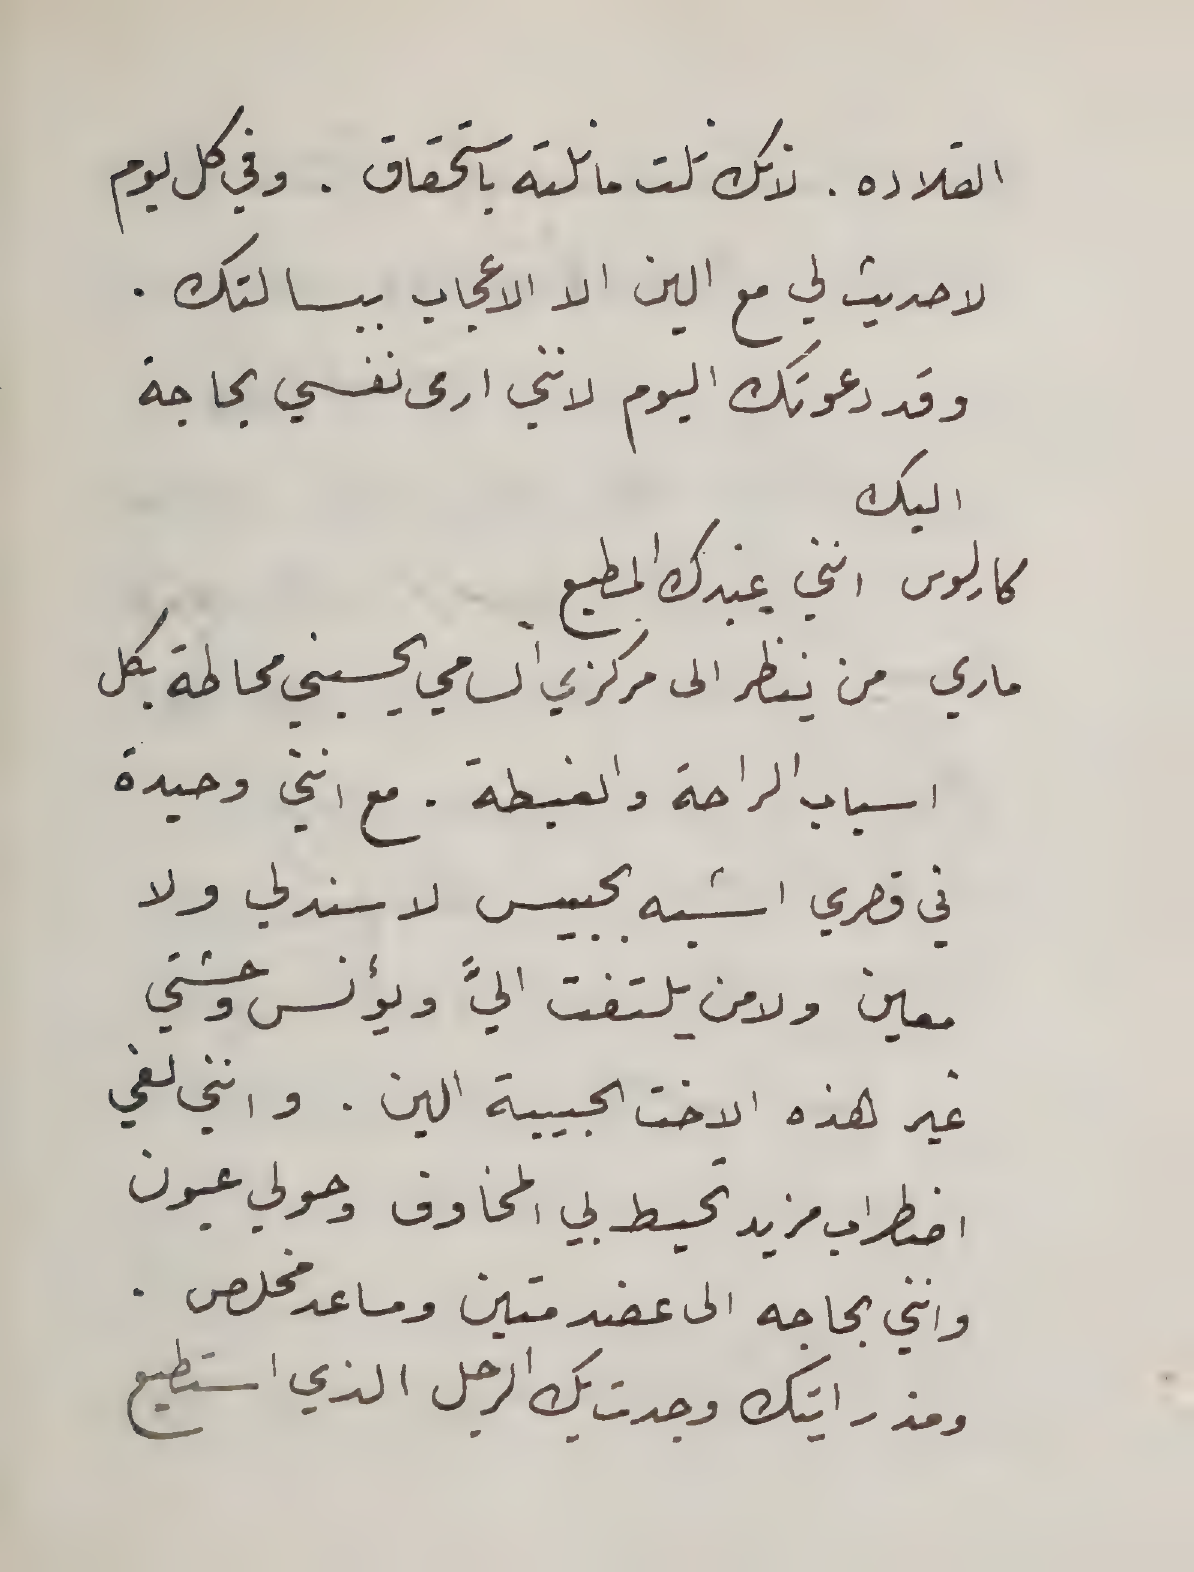 القلاده . لانك نلت ما نلته باستحقاق . وفي كل يوم
لا حديث لي مع الين الا الاعجاب ببسالتك .
وقد دعوتك اليوم لانني ارى نفسي بحاجة
اليك
كارلوس انني عبدك المطيع
ماري من ينظر الى مركزي السامي يحسبني محاطة بكل
اسباب الراحة والغبطة . مع انني وحيدة
في قصري اشبه بحبيس لا سند لي ولا
معين ولا من يلتفت اليَّ ويؤنس وحشتي
غير هذه الاخت الحبيبة الين . وانني لفي
اضطراب مزيد تحيط بي المخاوف وحولي عيون
وانني بحاجه الى عضد متين ومساعد مخلص .
ومذ رايتك وجدت بك الرجل الذي استطيع